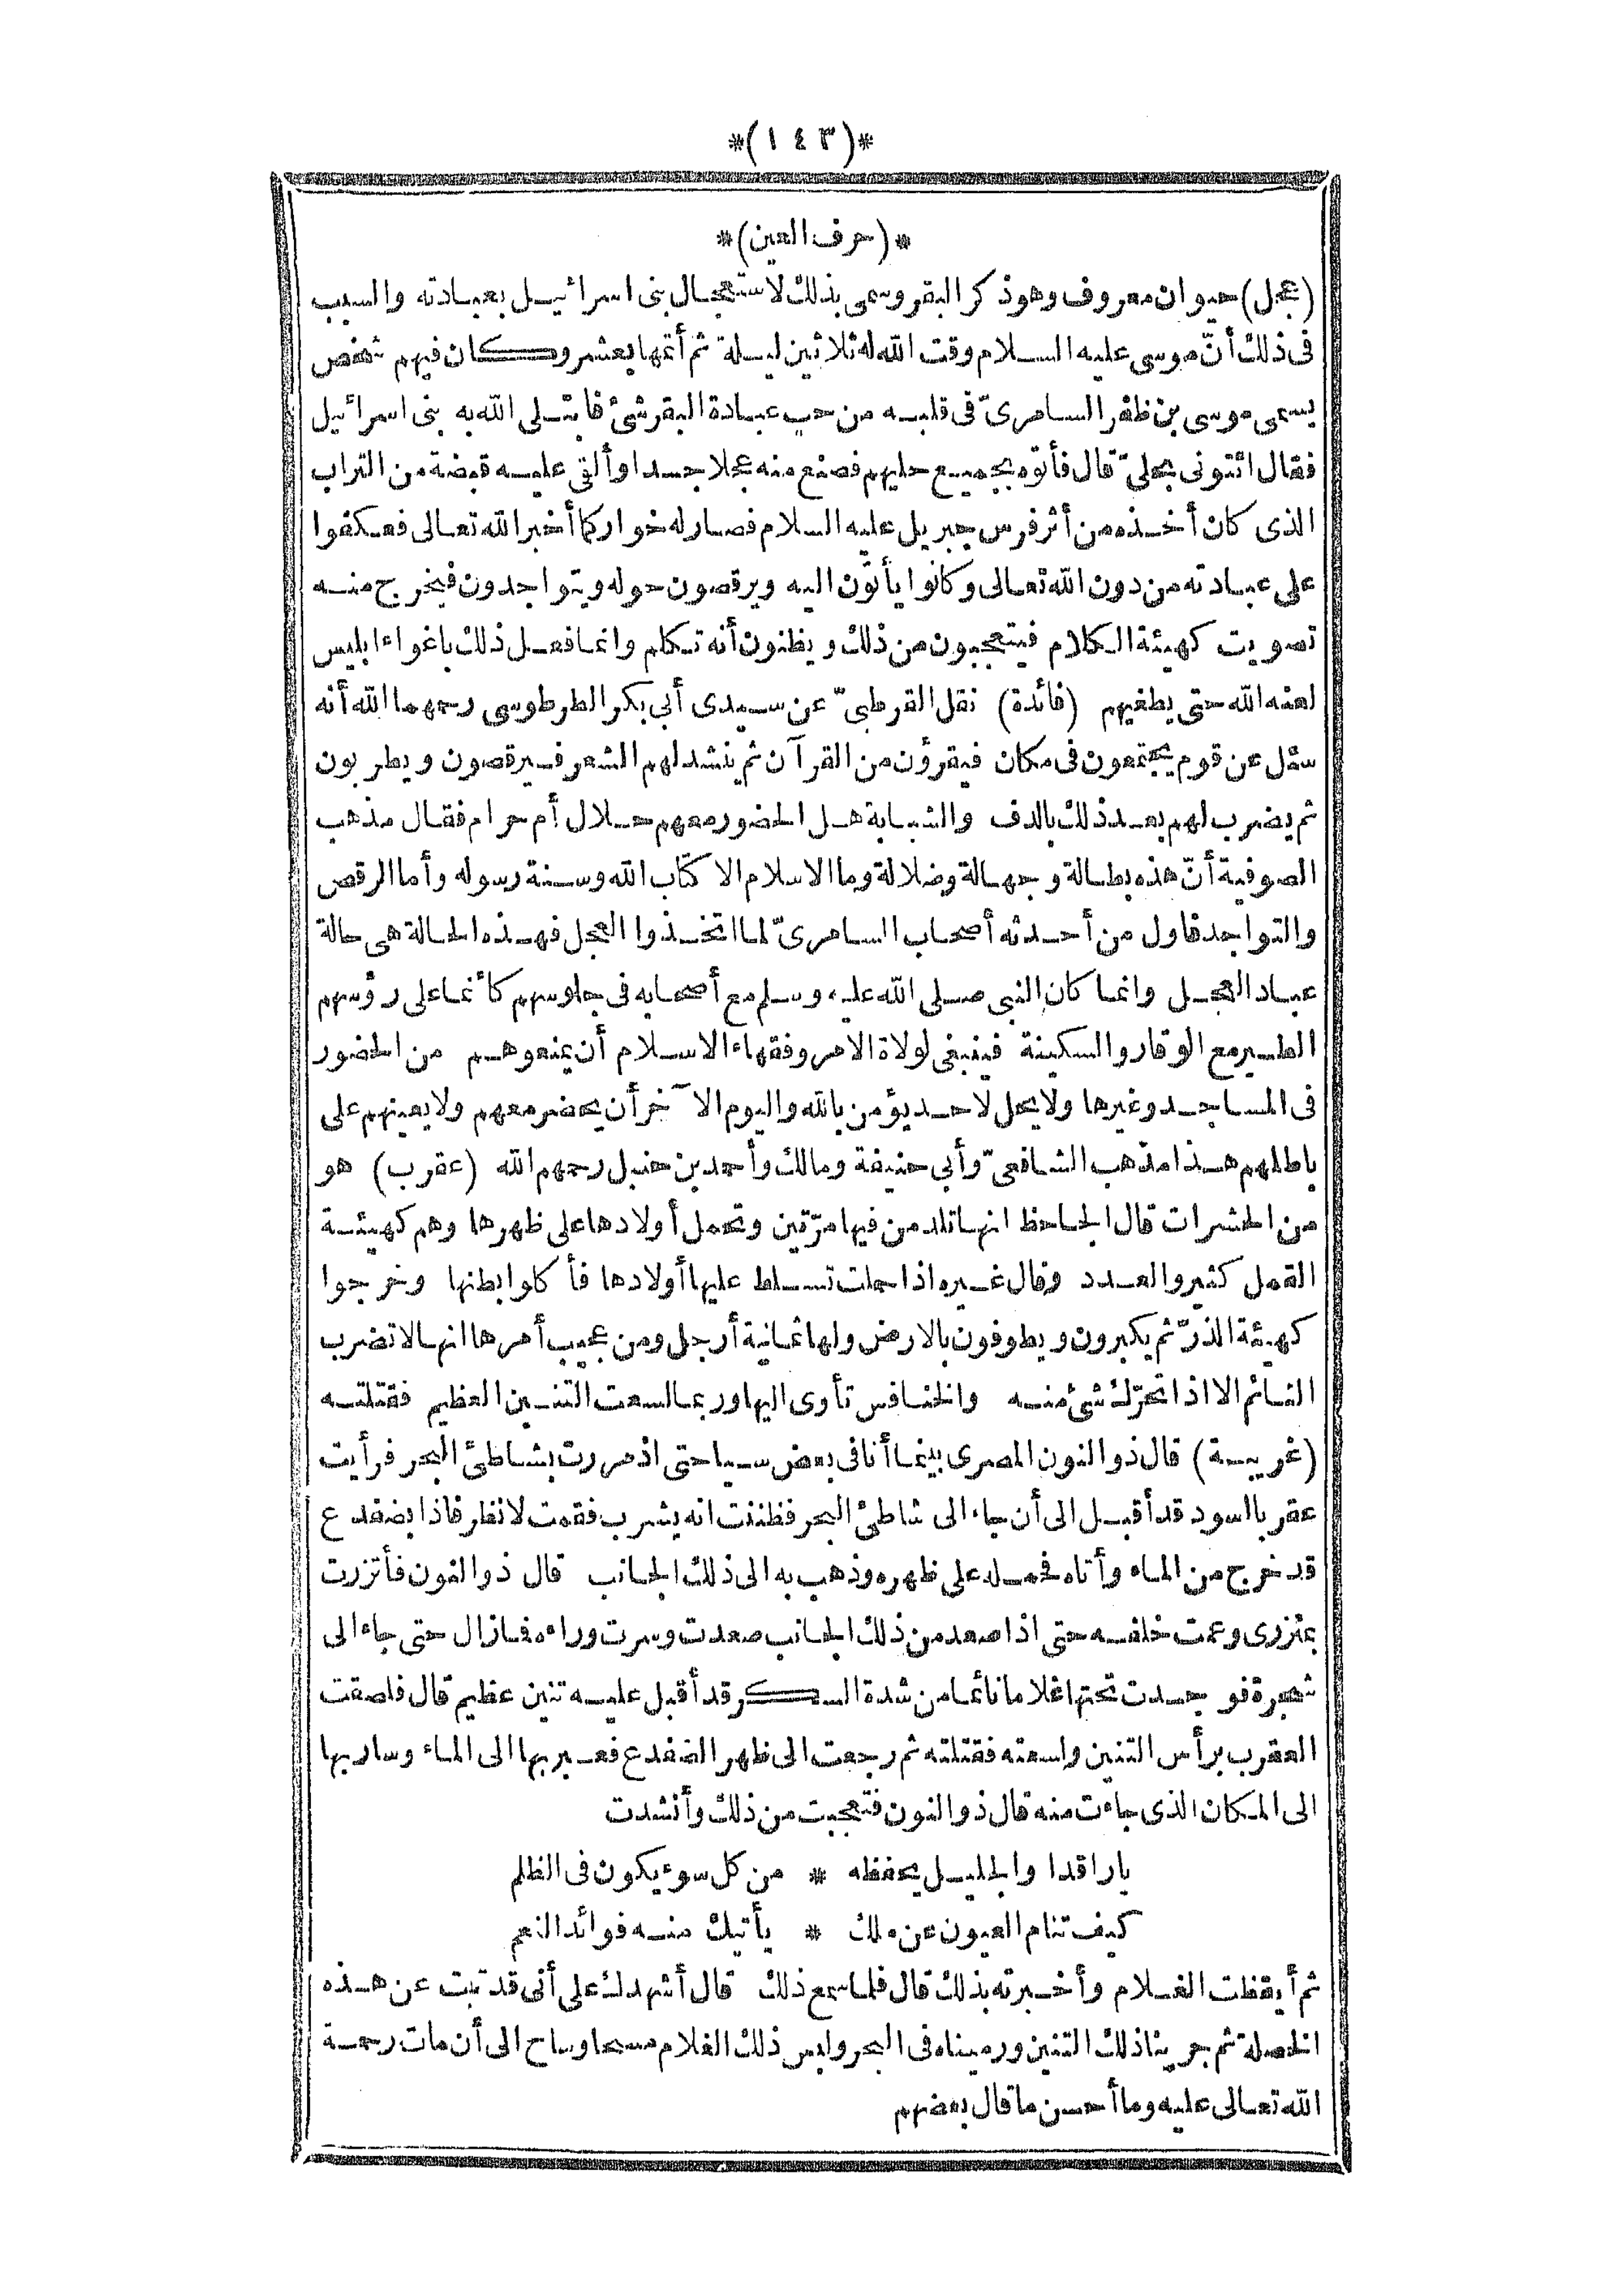 *(١٤٣)*
*(حرف العين)*
(عجل) حيوان معروف وهو ذكر البقر وسمى بذلك لاستعجال بنى اسرائيل بعبادته والسبب
فى ذلك أنّ موسى عليه السلام وقت الله له ثلاثين ليلة ثم أتمها بعشر وكان فيهم شخص
يسمى موسى بن ظفر السامرىّ فى قلبه من حب عبادة البقر شئ فابتلى الله به بنى اسرائيل
فقال ائتونى بحلىّ قال فأتوه بجميع حليهم فصنع منه عجلا جسدا وألقى عليه قبضة من التراب
الذى كان أخذه من أثر فرس جبريل عليه السلام فصار له خوار كما أخبر الله تعالى فعكفوا
على عبادته من دون الله تعالى وكانوا يأتون اليه ويرقصون حوله ويتواجدون فيخرج منه
تصويت كهيئة الكلام فيتعجبون من ذلك ويظنون أنه تكلم وانما فعل ذلك باغواء ابليس
لعنه الله حتى يطغيهم (فائدة) نقل القرطبىّ عن سيدى أبى بكر الطرطوسى رحمهما الله أنه
سئل عن قوم يجتمعون فى مكان فيقرؤن من القرآن ثم ينشد لهم الشعر فيرقصون ويطربون
ثم يضرب لهم بعد ذلك بالدف والشبابة هل الحضور معهم حلال أم حرام فقال مذهب
الصوفية أنّ هذه بطالة وجهالة وضلالة وما الاسلام الا كتاب الله وسنة رسوله وأما الرقص
والتواجد فاول من أحدثه أصحاب السامرىّ لما اتخذوا العجل فهذه الحالة هى حالة
عباد العجل وانما كان النبى صلى الله عليه وسلم مع أصحابه فى جلوسهم كأنما على رؤسهم
الطير مع الوقار والسكينة فينبغى لولاة الامر وفقهاء الاسلام أن يمنعوهم من الحضور
فى المساجد وغيرها ولا يحل لاحد يؤمن بالله واليوم الآخر أن يحضر معهم ولا يعينهم على
باطلهم هذا مذهب الشافعىّ وأبى حنيفة ومالك وأحمد بن حنبل رحمهم الله (عقرب) هو
من الحشرات قال الجاحظ انها تلد من فيها مرّتين وتحمل أولادها على ظهرها وهم كهيئة
القمل كثيرو العدد وقال غيره اذا حملت تسلط عليها أولادها فأكلوا بطنها وخرجوا
كهيئة الذرّ ثم يكبرون ويطوفون بالارض ولها ثمانية أرجل ومن عجيب أمرها انها لا تضرب
النائم الا اذا تحرّك شئ منه والخنافس تأوى اليها وربما لسعت التنين العظيم فقتلته
(غريبة) قال ذو النون المصرى بينما أنا فى بعض سياحتى اذ مررت بشاطئ البحر فرأيت
عقربا اسود قد أقبل الى أن جاء الى شاطئ البحر فظننت انه يشرب فقمت لانظر فاذا بضفدع
قد خرج من الماء وأتاه فحمله على ظهره وذهب به الى ذلك الجانب قال ذو النون فأتزرت
بمئزرى وعمت خلفه حتى اذا صعد من ذلك الجانب صعدت وسرت وراءه فما زال حتى جاء الى
شجرة فوجدت تحتها غلاما نائما من شدة السكر قد أقبل عليه تنين عظيم قال فلصقت
العقرب برأس التنين ولسعته فقتلته ثم رجعت الى ظهر الضفدع فعبر بها الى الماء وسار بها
الى المكان الذى جاءت منه قال ذو النون فتعجبت من ذلك وأنشدت
يا راقدا والجليل يحفظه * من كل سوء يكون فى الظلم
كيف تنام العيون عن ملك * يأتيك منه فوائد النعم
ثم أيقظت الغلام وأخبرته بذلك قال فلما سمع ذلك قال أشهدك على أنى قد تبت عن هذه
الخصلة ثم جرينا ذلك التنين ورميناه فى البحر ولبس ذلك الغلام مسحا وساح الى أن مات رحمة
الله تعالى عليه وما أحسن ما قال بعضهم